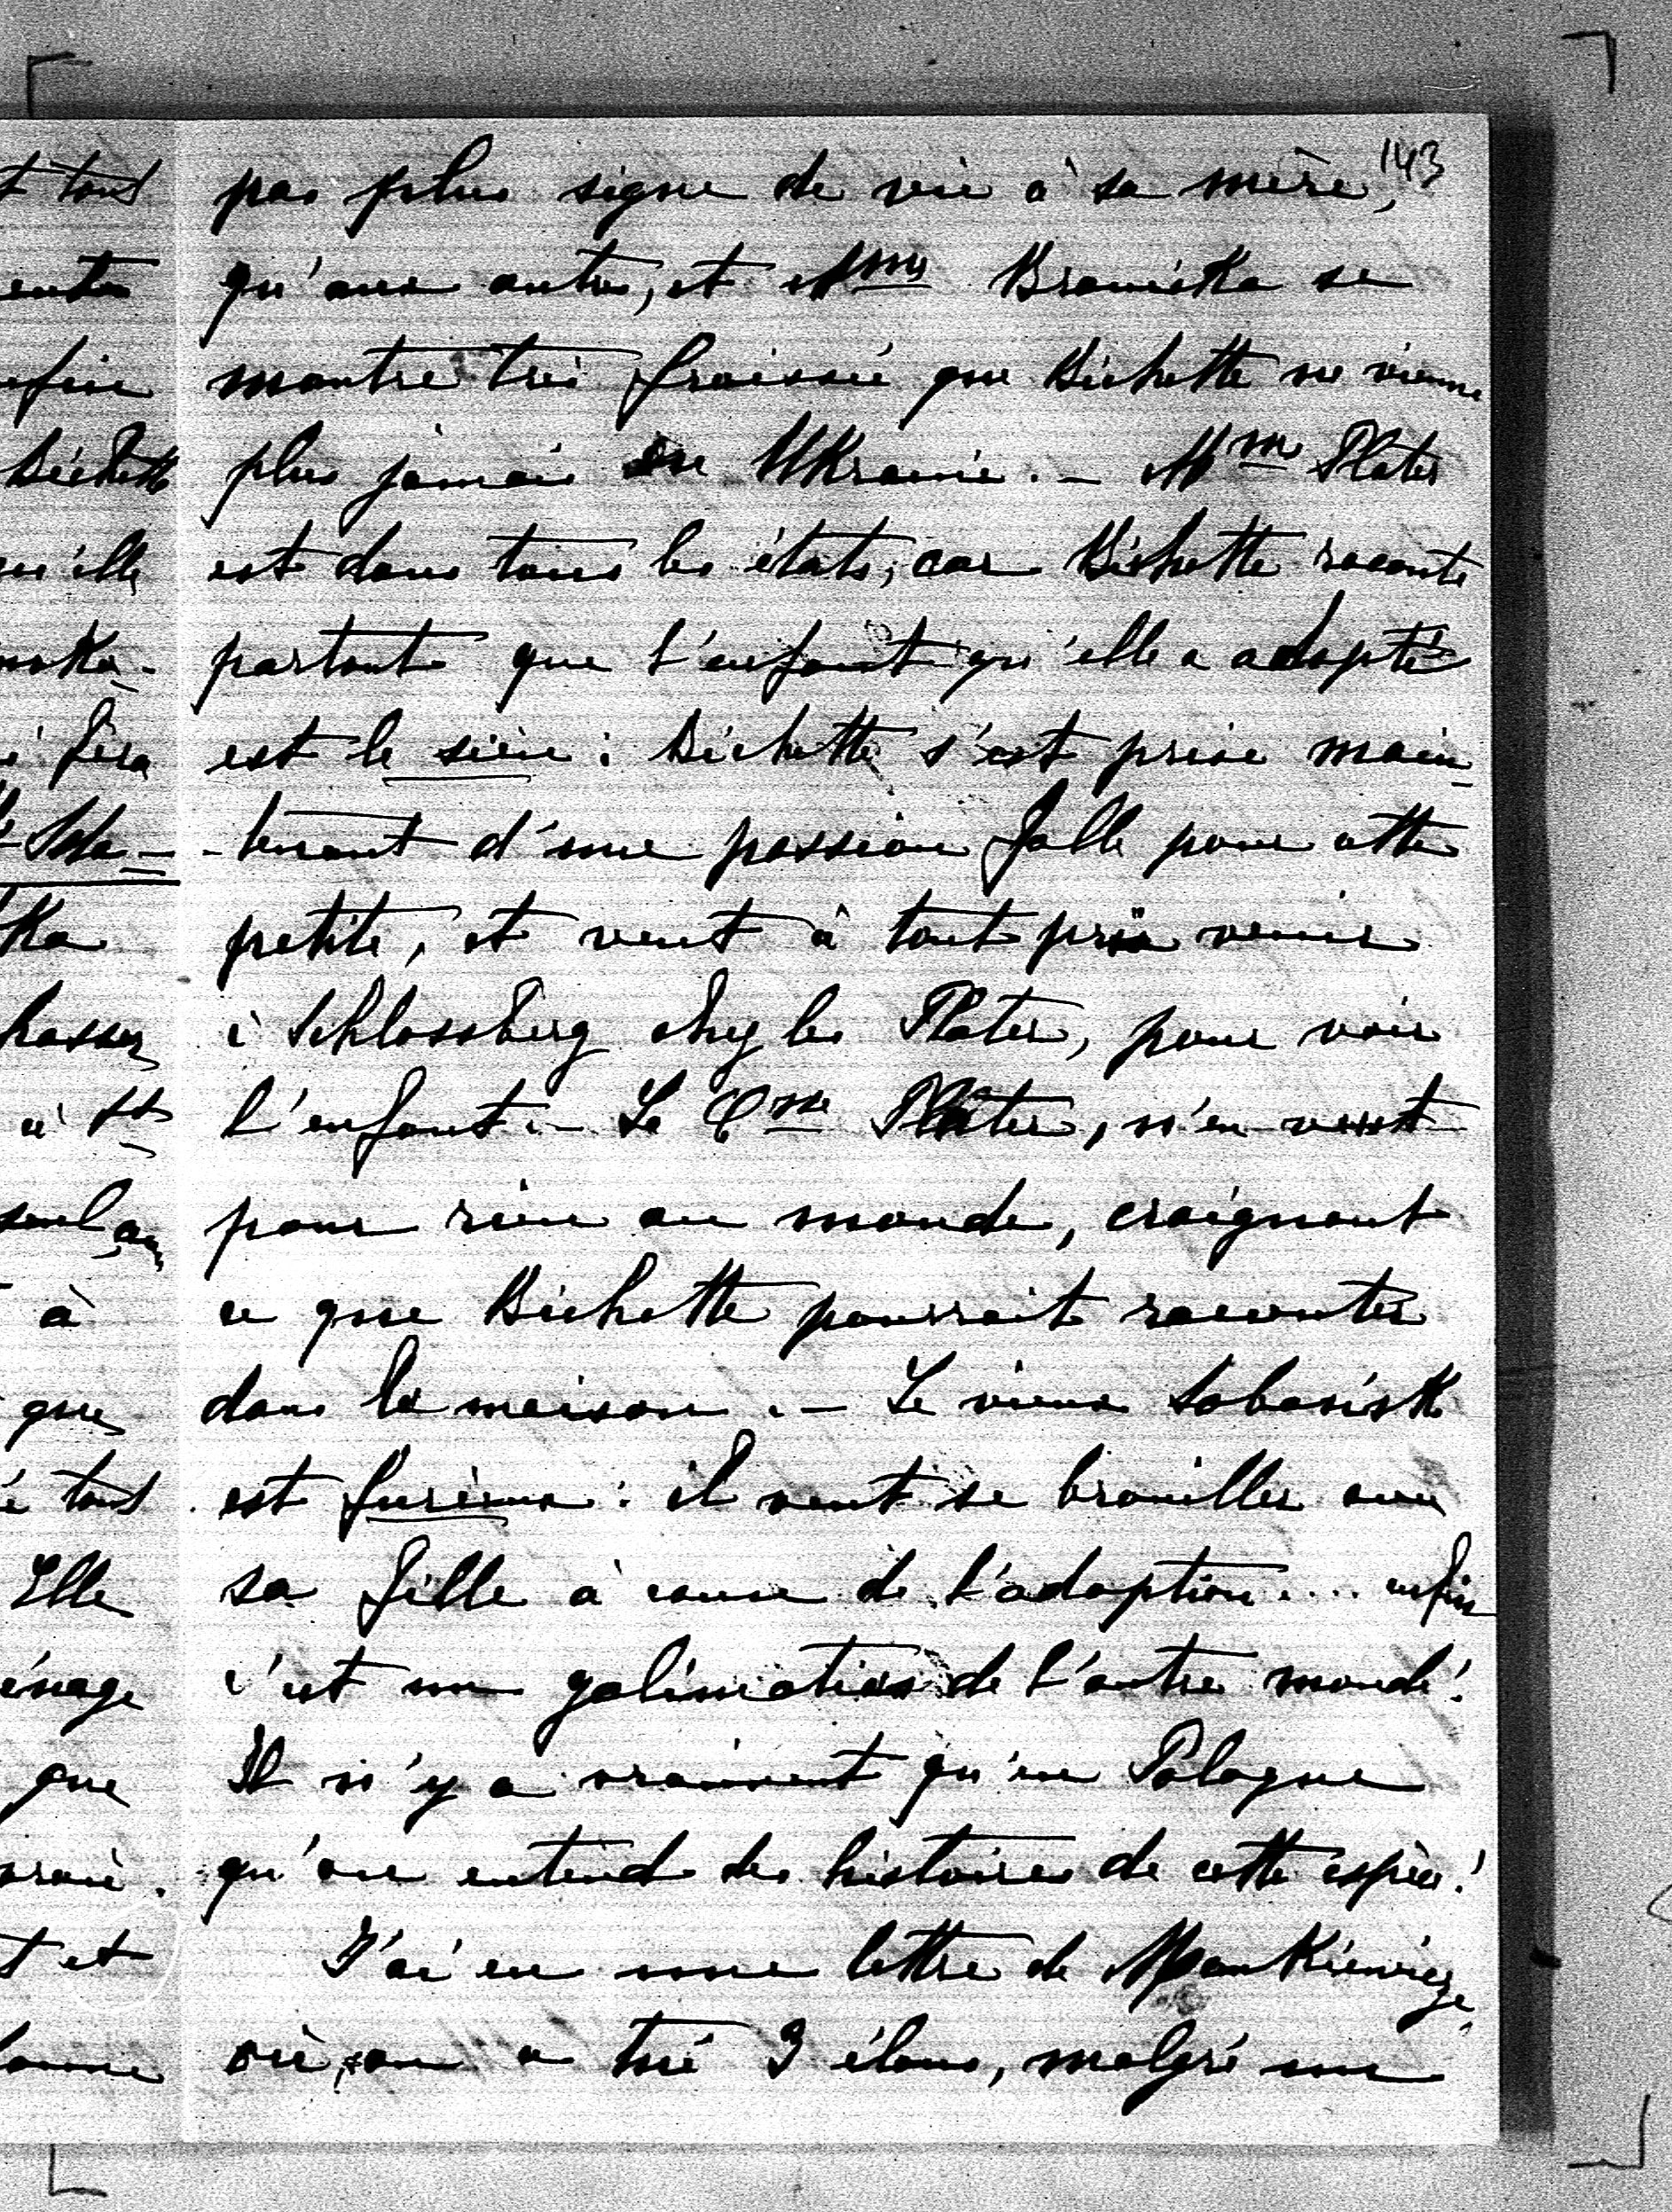 143
pas plus signe de vie à sa mère,
qu'aux autres, et Mme Branicka se
montre très froissée que Bichette ne vienne
plus jamais en Ukraine. — Mme Plater
est dans tous les états, car Bichette raconte
partout que l'enfant qu'elle a adopté
est le sien: Bichette s'est prise main-
-tenant d'une passion folle pour cette
petite, et veut à tout prix venir
à Schlossberg chez les Plater, pour voir
l'enfant. — La Csse Plater, n'en veut
pour rien au monde, craignant
ce que Bichette pourrait raconter
dans la maison. — Le vieux
est furieux: il veut se brouiller avec
sa fille à cause de l'adoption.... enfin
c'est un galimatias de l'autre monde!
Il n'y a vraiment qu'en Pologne
qu'on entend des histoires de cette espèce!
J'ai eu une lettre de Mankiewicze,
où on a tué 3 élans, malgré une
t tous
Bichette
qu'elle
à
que
tous
Elle
que
t et